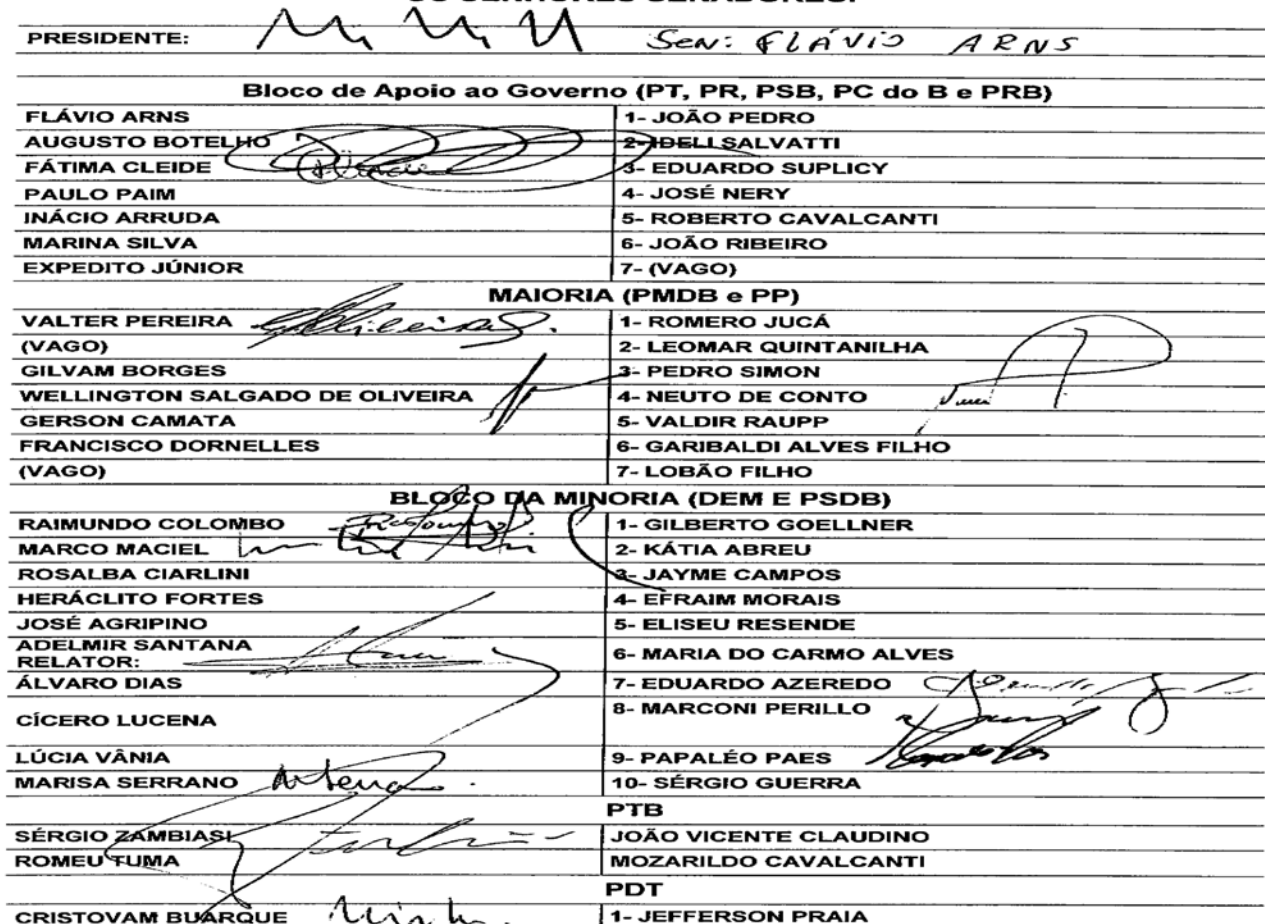 OS SENHORES SENADORES:
PRESIDENTE: Sen: FLÁVIO ARNS
Bloco de Apoio ao Governo (PT, PR, PSB, PC do B e PRB)
FLÁVIO ARNS 1- JOÃO PEDRO
AUGUSTO BOTELHO 2- IDELI SALVATTI
FÁTIMA CLEIDE 3- EDUARDO SUPLICY
PAULO PAIM 4- JOSÉ NERY
INÁCIO ARRUDA 5- ROBERTO CAVALCANTI
MARINA SILVA 6- JOÃO RIBEIRO
EXPEDITO JÚNIOR 7- (VAGO)
MAIORIA (PMDB e PP)
VALTER PEREIRA 1- ROMERO JUCÁ
(VAGO) 2- LEOMAR QUINTANILHA
GILVAM BORGES 3- PEDRO SIMON
WELLINGTON SALGADO DE OLIVEIRA 4- NEUTO DE CONTO
GERSON CAMATA 5- VALDIR RAUPP
FRANCISCO DORNELLES 6- GARIBALDI ALVES FILHO
(VAGO) 7- LOBÃO FILHO
BLOCO DA MINORIA (DEM E PSDB)
RAIMUNDO COLOMBO 1- GILBERTO GOELLNER
MARCO MACIEL 2- KÁTIA ABREU
ROSALBA CIARLINI 3- JAYME CAMPOS
HERÁCLITO FORTES 4- EFRAIM MORAIS
JOSÉ AGRIPINO 5- ELISEU RESENDE
ADELMIR SANTANA
RELATOR: 6- MARIA DO CARMO ALVES
ÁLVARO DIAS 7- EDUARDO AZEREDO
CÍCERO LUCENA 8- MARCONI PERILLO
LÚCIA VÂNIA 9- PAPALÉO PAES
MARISA SERRANO 10- SÉRGIO GUERRA
PTB
SÉRGIO ZAMBIASI JOÃO VICENTE CLAUDINO
ROMEU TUMA MOZARILDO CAVALCANTI
PDT
CRISTOVAM BUARQUE 1- JEFFERSON PRAIA